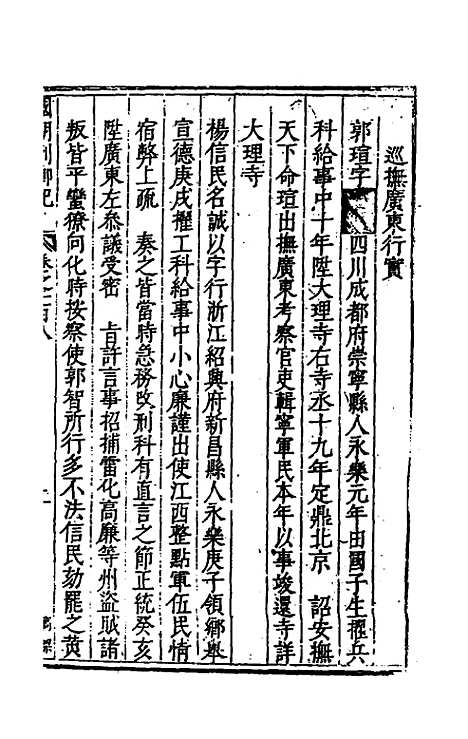 巡撫廣東行實
郭瑄字 四川成都府崇寧縣人永樂元年由國子生擢兵
科給事中十年陞大理寺右寺丞十九年定鼎北京 詔安撫
天下命瑄出撫廣東考察官吏輯寧軍民本年以事竣還寺詳
大理寺
楊信民名誠以字行浙江紹興府新昌縣人永樂庚子領鄉舉
宣德庚戌擢工科給事中小心廉謹出使江西整點軍伍民情
宿弊上疏 奏之皆當時急務改刑科有直言之節正統癸亥
陞廣東左叅議受密 旨許言事招捕雷化高廉等州盜賊諸
叛皆平蠻獠向化時按察使郭智所行多不法信民劾罷之黄
國朝列卿記 卷之一百八 二